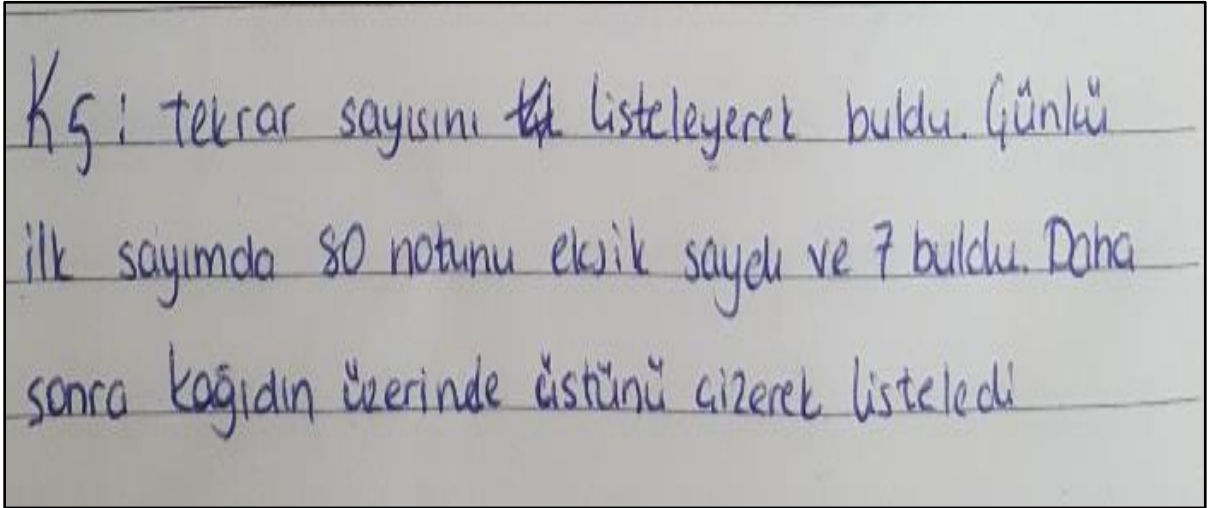 KŞ: tekrar sayısını listeleyerek buldu. Çünkü
ilk sayımda 80 notunu eksik saydı ve 7 buldu. Daha
sonra kağıdın üzerinde üstünü çizerek listeledi